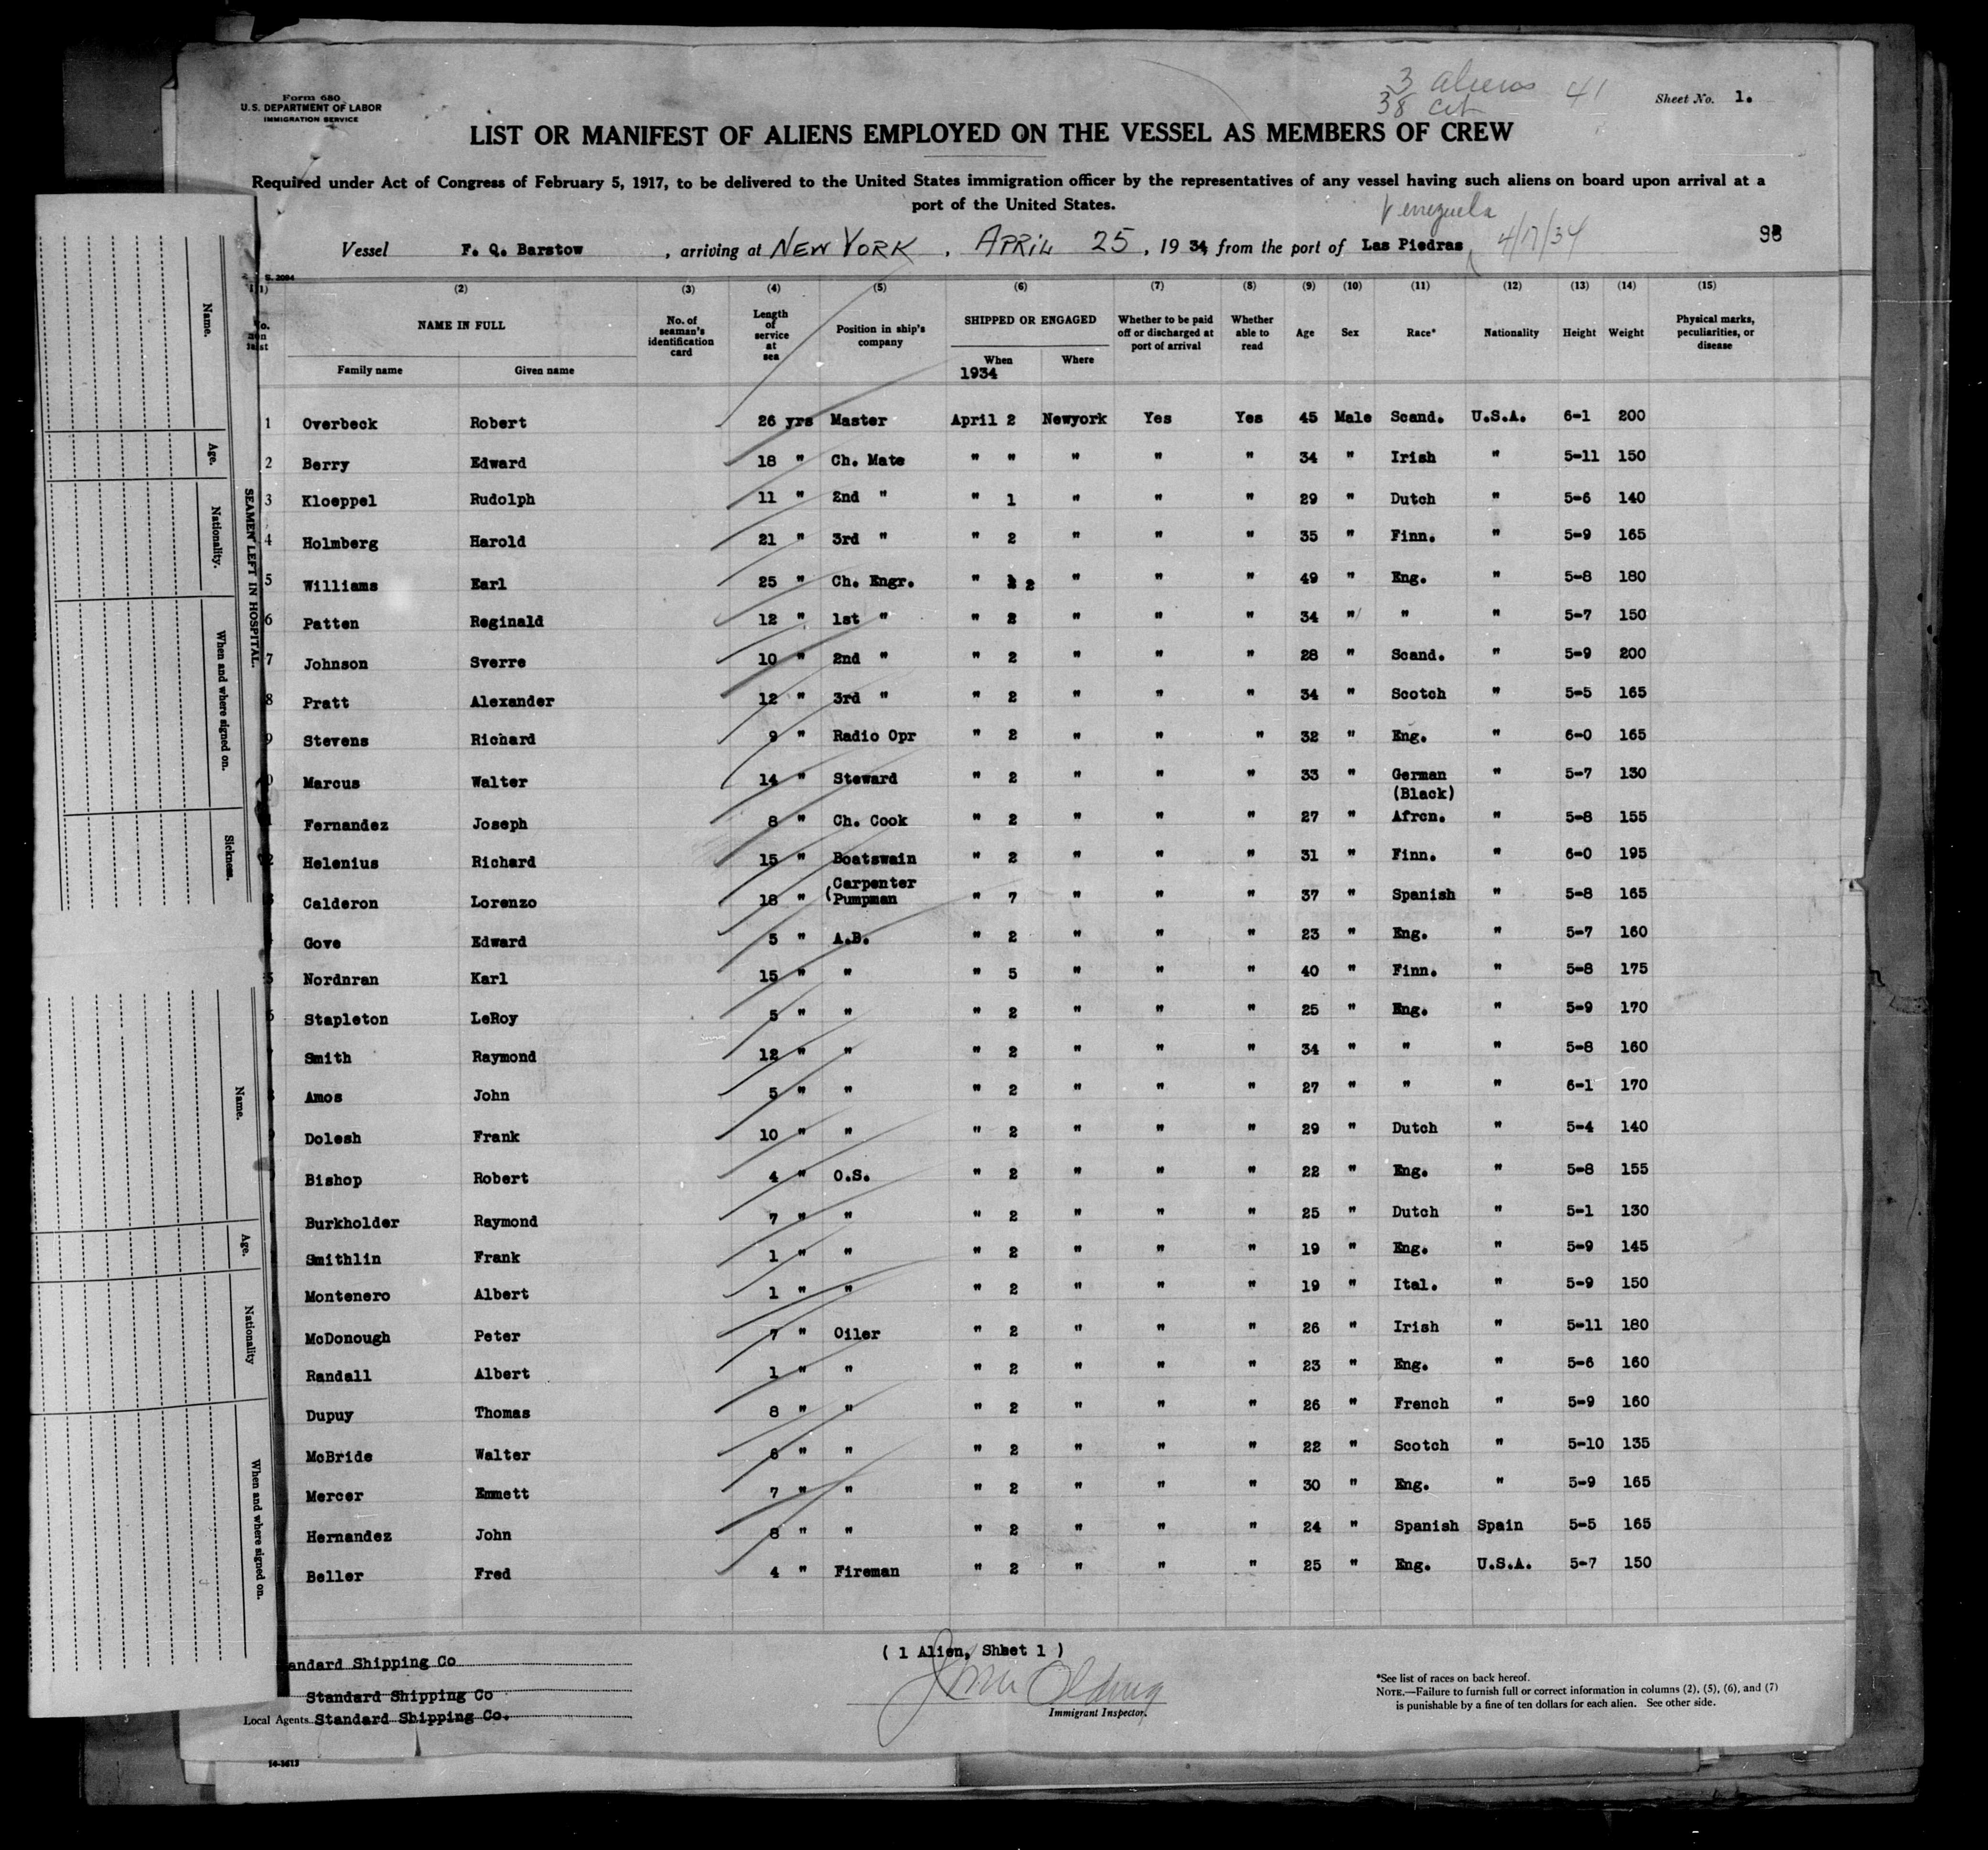 Form 680
U.S. DEPARTMENT OF LABOR
IMMIGRATION SERVICE
3 aliens 41
38 cit
Sheet No. 1.
LIST OR MANIFEST OF ALIENS EMPLOYED ON THE VESSEL AS MEMBERS OF CREW
Required under Act of Congress of February 5, 1917, to be delivered to the United States immigration officer by the representatives of any vessel having such aliens on board upon arrival at a
port of the United States.
Venezuela
Vessel F. Q. Barstow , arriving at NEW YORK , APRIL 25 , 19 34, from the port of Las Piedras 4/17/34
S. 2094
(2) (3) (4) (5) (6) (7) (8) (9) (10) (11) (12) (13) (14) (15)
NAME IN FULL No. of seaman's identification card Length of service at sea Position in ship's company SHIPPED OR ENGAGED Whether to be paid off or discharged at port of arrival Whether able to read Age Sex Race* Nationality Height Weight Physical marks, peculiarities, or disease
Family name Given name When Where
1934
1 Overbeck Robert 26 yrs Master April 2 Newyork Yes Yes 45 Male Scand. U.S.A. 6-1 200
2 Berry Edward 18 " Ch. Mate " " " " " 34 " Irish " 5-11 150
3 Kloeppel Rudolph 11 " 2nd " " 1 " " " 29 " Dutch " 5-6 140
4 Holmberg Harold 21 " 3rd " " 2 " " " 35 " Finn. " 5-9 165
5 Williams Earl 25 " Ch. Engr. " 2 " " " 49 " Eng. " 5-8 180
6 Patten Reginald 12 " 1st " " 2 " " " 34 " " " 5-7 150
7 Johnson Sverre 10 " 2nd " " 2 " " " 28 " Scand. " 5-9 200
8 Pratt Alexander 12 " 3rd " " 2 " " " 34 " Scotch " 5-5 165
9 Stevens Richard 9 " Radio Opr " 2 " " " 32 " Eng. " 6-0 165
0 Marcus Walter 14 " Steward " 2 " " " 33 " German " 5-7 130
(Black)
Fernandez Joseph 8 " Ch. Cook " 2 " " " 27 " Afrcn. " 5-8 155
Helenius Richard 15 " Boatswain " 2 " " " 31 " Finn. " 6-0 195
(Carpenter
Calderon Lorenzo 18 " Pumpman " 7 " " " 37 " Spanish " 5-8 165
Gove Edward 5 " A.B. " 2 " " " 23 " Eng. " 5-7 160
5 Nordnran Karl 15 " " " 5 " " " 40 " Finn. " 5-8 175
Stapleton LeRoy 5 " " " 2 " " " 25 " Eng. " 5-9 170
Smith Raymond 12 " " " 2 " " " 34 " " " 5-8 160
Amos John 5 " " " 2 " " " 27 " " " 6-1 170
Dolesh Frank 10 " " " 2 " " " 29 " Dutch " 5-4 140
Bishop Robert 4 " O.S. " 2 " " " 22 " Eng. " 5-8 155
Burkholder Raymond 7 " " " 2 " " " 25 " Dutch " 5-1 130
Smithlin Frank 1 " " " 2 " " " 19 " Eng. " 5-9 145
Montenero Albert 1 " " " 2 " " " 19 " Ital. " 5-9 150
McDonough Peter 7 " Oiler " 2 " " " 26 " Irish " 5-11 180
Randall Albert 1 " " " 2 " " " 23 " Eng. " 5-6 160
Dupuy Thomas 8 " " " 2 " " " 26 " French " 5-9 160
McBride Walter 6 " " " 2 " " " 22 " Scotch " 5-10 135
Mercer Emmett 7 " " " 2 " " " 30 " Eng. " 5-9 165
Hernandez John 8 " " " 2 " " " 24 " Spanish Spain 5-5 165
Beller Fred 4 " Fireman " 2 " " " 25 " Eng. U.S.A. 5-7 150
( 1 Alien, Shhet 1 )
andard Shipping Co
Standard Shipping Co
Local Agents Standard Shipping Co.
Immigrant Inspector.
*See list of races on back hereof.
NOTE.—Failure to furnish full or correct information in columns (2), (5), (6), and (7)
is punishable by a fine of ten dollars for each alien. See other side.
14-1613
SEAMEN LEFT IN HOSPITAL.
Name.
Age.
Nationality.
When and where signed on.
Sickness.
Name.
Age.
Nationality
When and where signed on.